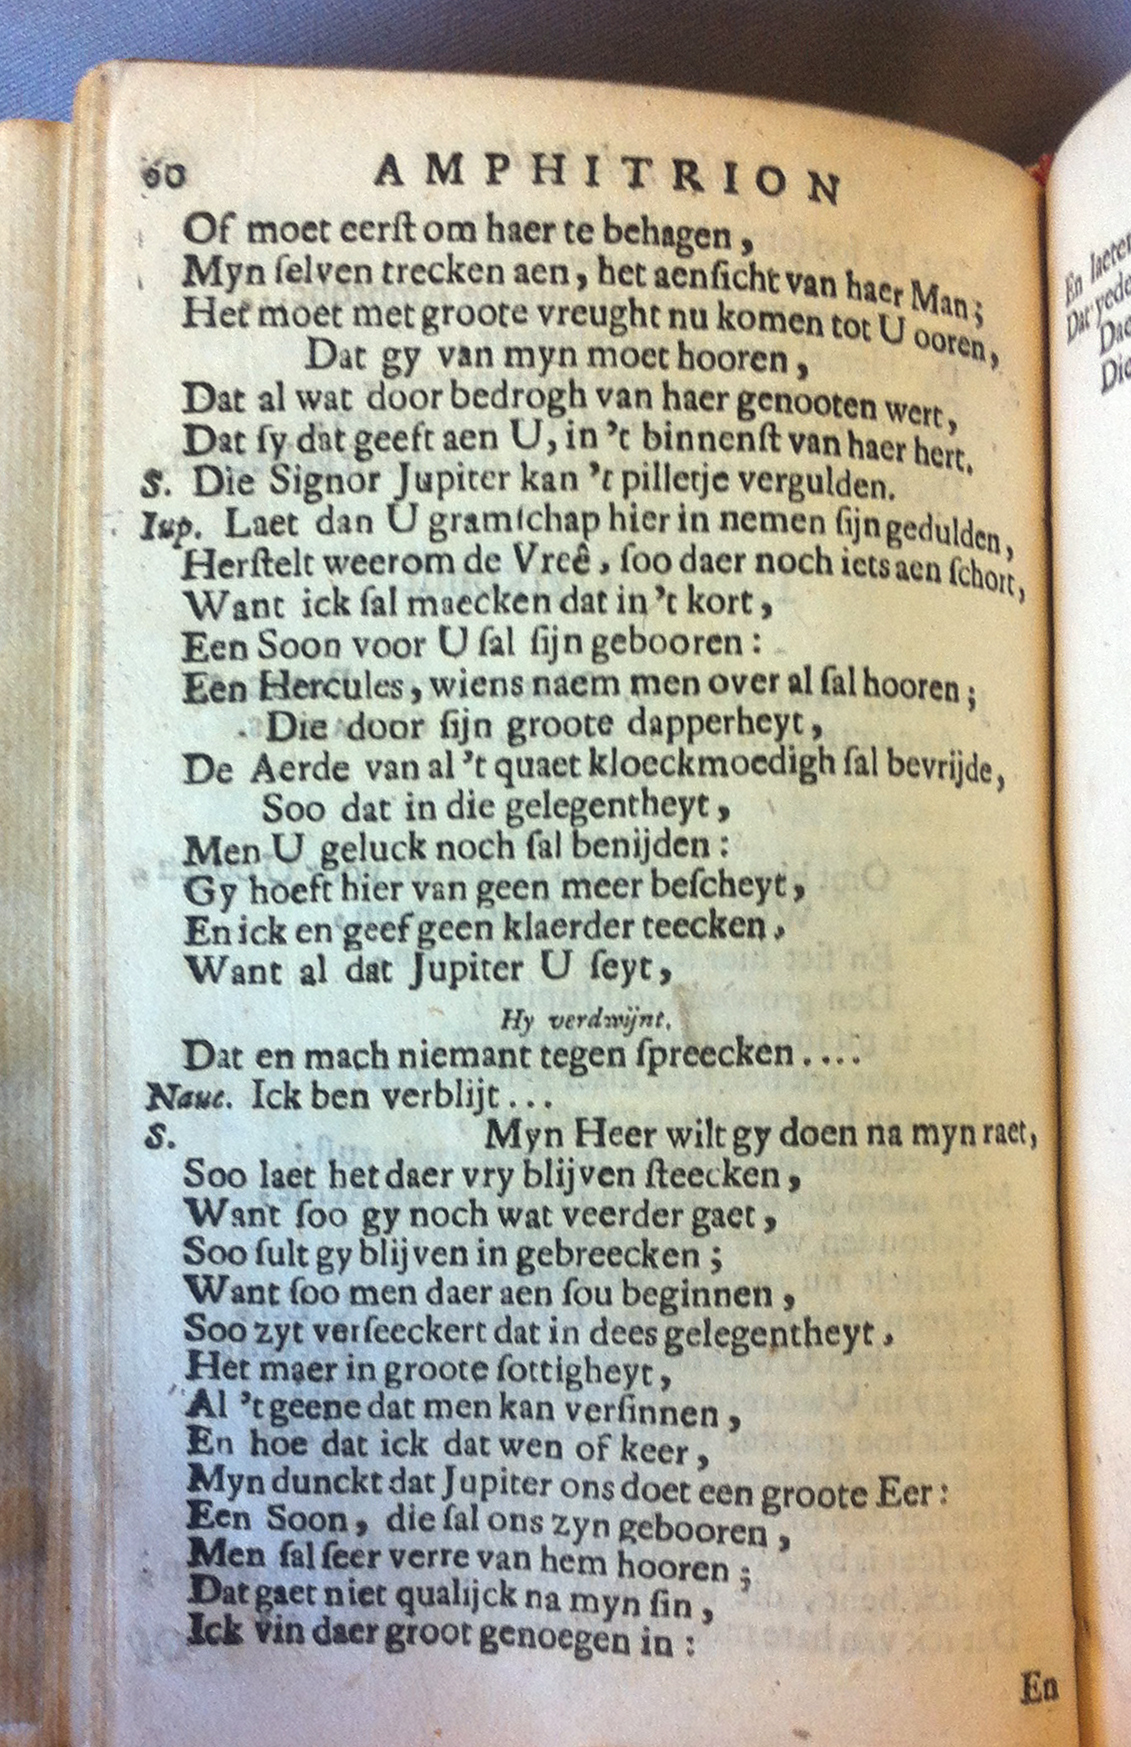 60 AMPHITRION
Of moet eerſt om haer te behagen,
Myn ſelven trecken aen, het aenſicht van haer Man;
Het moet met groote vreught nu komen tot U ooren,
Dat gy van myn moet hooren,
Dat al wat door bedrogh van haer genooten wert,
Dat ſy dat geeft aen U, in 't binnenſt van haer hert.
S. Die Signor Jupiter kan 't pilletje vergulden.
Iup. Laet dan U gramſchap hier in nemen ſijn gedulden,
Herſtelt weerom de Vreê, ſoo daer noch iets aen ſchort,
Want ick ſal maecken dat in 't kort,
Een Soon voor U ſal ſijn gebooren:
Een Hercules, wiens naem men over al ſal hooren;
Die door ſijn groote dapperheyt,
De Aerde van al 't quaet kloeckmoedigh ſal bevrijde,
Soo dat in die gelegentheyt,
Men U geluck noch ſal benijden:
Gy hoeft hier van geen meer beſcheyt,
En ick en geef geen klaerder teecken,
Want al dat Jupiter U ſeyt,
Hy verdwijnt.
Dat en mach niemant tegen ſpreecken....
Nauc. Ick ben verblijt...
S. Myn Heer wilt gy doen na myn raet,
Soo laet het daer vry blijven ſteecken,
Want ſoo gy noch wat veerder gaet,
Soo ſult gy blijven in gebreecken;
Want ſoo men daer aen ſou beginnen,
Soo zyt verſeeckert dat in dees gelegentheyt,
Het maer in groote ſottigheyt,
Al 't geene dat men kan verſinnen,
En hoe dat ick dat wen of keer,
Myn dunckt dat Jupiter ons doet een groote Eer:
Een Soon, die ſal ons zyn gebooren,
Men ſal ſeer verre van hem hooren;
Dat gaet niet qualijck na myn ſin,
Ick vin daer groot genoegen in:
En
En laeten
Dat
Die